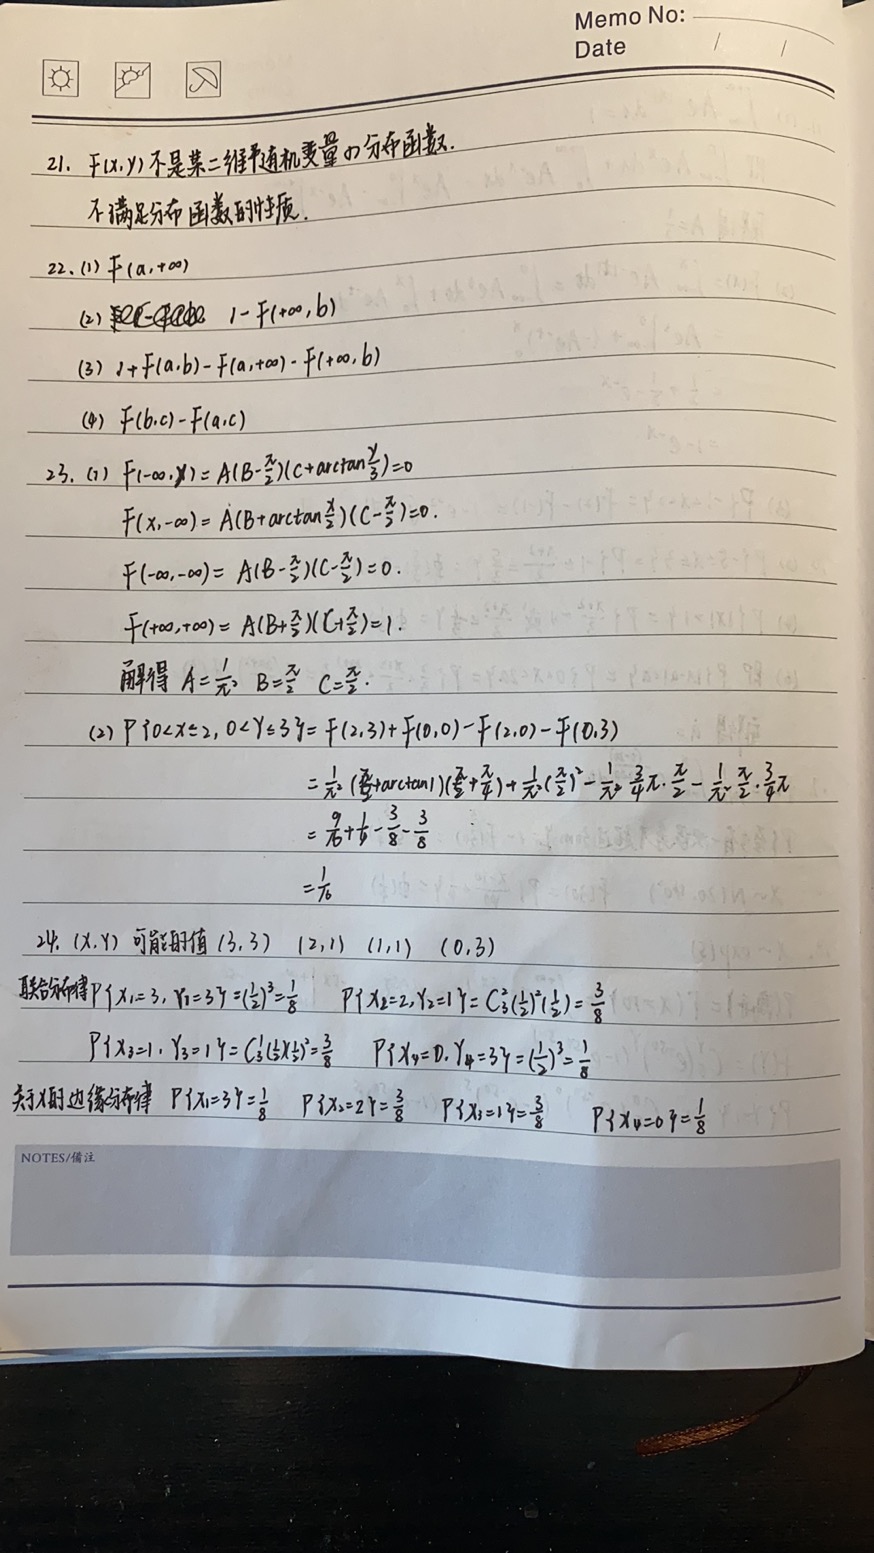 Memo No:
Date / /
21. F(x,y)不是某二维随机变量的分布函数.
不满足分布函数的性质.
22. (1) F(a,+∞)
(2) 1-F(+∞,b)
(3) 1+F(a,b)-F(a,+∞)-F(+∞,b)
(4) F(b,c)-F(a,c)
23. (1) F(-∞,y)=A(B-π/2)(C+arctan y/3)=0
F(x,-∞)=A(B+arctan x/2)(C-π/2)=0.
F(-∞,-∞)=A(B-π/2)(C-π/2)=0.
F(+∞,+∞)=A(B+π/2)(C+π/2)=1.
解得 A=1/π² B=π/2 C=π/2.
(2) P{0<X≤2, 0<Y≤3}=F(2,3)+F(0,0)-F(2,0)-F(0,3)
=1/π²(π/2+arctan1)(π/2+π/4)+1/π²(π/2)²-1/π² 3/4π·π/2-1/π² π/2·3/4π
=9/16+1/4-3/8-3/8
=1/16
24. (X,Y) 可能的值 (3,3) (2,1) (1,1) (0,3)
联合分布律P{X₁=3,Y₁=3}=(1/2)³=1/8 P{X₂=2,Y₂=1}=C₃²(1/2)²(1/2)=3/8
P{X₃=1,Y₃=1}=C₃¹(1/2)(1/2)²=3/8 P{X₄=0,Y₄=3}=(1/2)³=1/8
关于X的边缘分布律 P{X₁=3}=1/8 P{X₂=2}=3/8 P{X₃=1}=3/8 P{X₄=0}=1/8
NOTES/備注